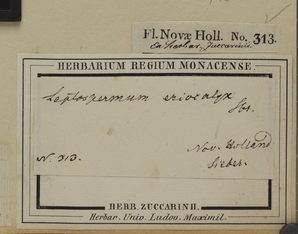 Fl. Novæ Holl. No. 313.
Ex herbar. Zuccarinii.
HERBARIUM REGIUM MONACENSE.
Leptospermum eriocalyx
Sbr.
Nov. Holland
N. 313.
Sieber.
HERB. ZUCCARINII.
Herbar. Univ. Ludov. Maximil.